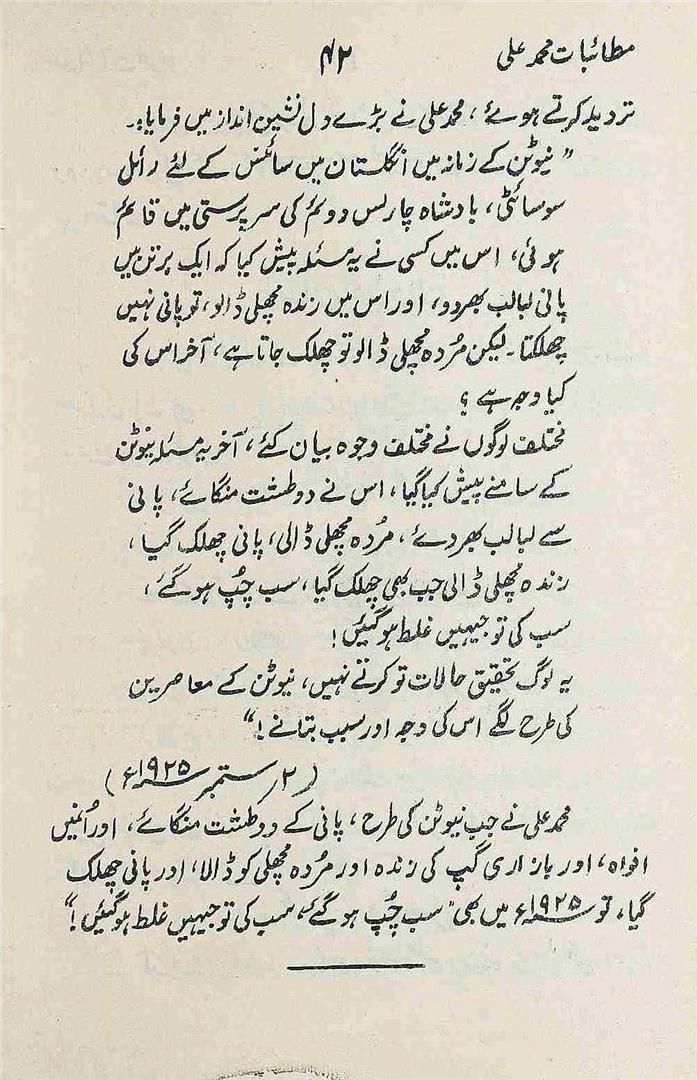 مطائبات محمد علی ۴۲
تردید کرتے ہوئے ، محمد علی نے بڑے دل نشین انداز میں فرمایا:۔
" نیوٹن کے زمانہ میں انگلستان میں سائنس کے لئے رائل
سوسائٹی، بادشاہ چارلس دوئم کی سرپرستی میں قائم
ہوئی، اس میں کسی نے یہ مسئلہ پیش کیا کہ ایک برتن میں
پانی لبالب بھر دو، اور اس میں زندہ مچھلی ڈالو، تو پانی نہیں
چھلکتا۔ لیکن مُردہ مچھلی ڈالو تو چھلک جاتا ہے، آخر اس کی
کیا وجہ ہے ؟
مختلف لوگوں نے مختلف وجوہ بیان کئے، آخر یہ مسئلہ نیوٹن
کے سامنے پیش کیا گیا، اس نے دو طشت منگائے، پانی
سے لبالب بھر دئے، مُردہ مچھلی ڈالی، پانی چھلک گیا،
زندہ مچھلی ڈالی جب بھی چھلک گیا، سب چُپ ہو گئے،
سب کی توجیہیں غلط ہو گئیں!
یہ لوگ تحقیق حالات تو کرتے نہیں، نیوٹن کے معاصرین
کی طرح لگے اس کی وجہ اور سبب بتانے!"
(۲ ستمبر ۱۹۲۵ء)
محمد علی نے جب نیوٹن کی طرح، پانی کے دو طشت منگائے، اور اُنہیں
افواہ، اور بازاری گپ کی زندہ اور مُردہ مچھلی کو ڈالا، اور پانی چھلک
گیا، تو ۱۹۲۵ء میں بھی "سب چُپ ہو گئے، سب کی توجیہیں غلط ہو گئیں!"